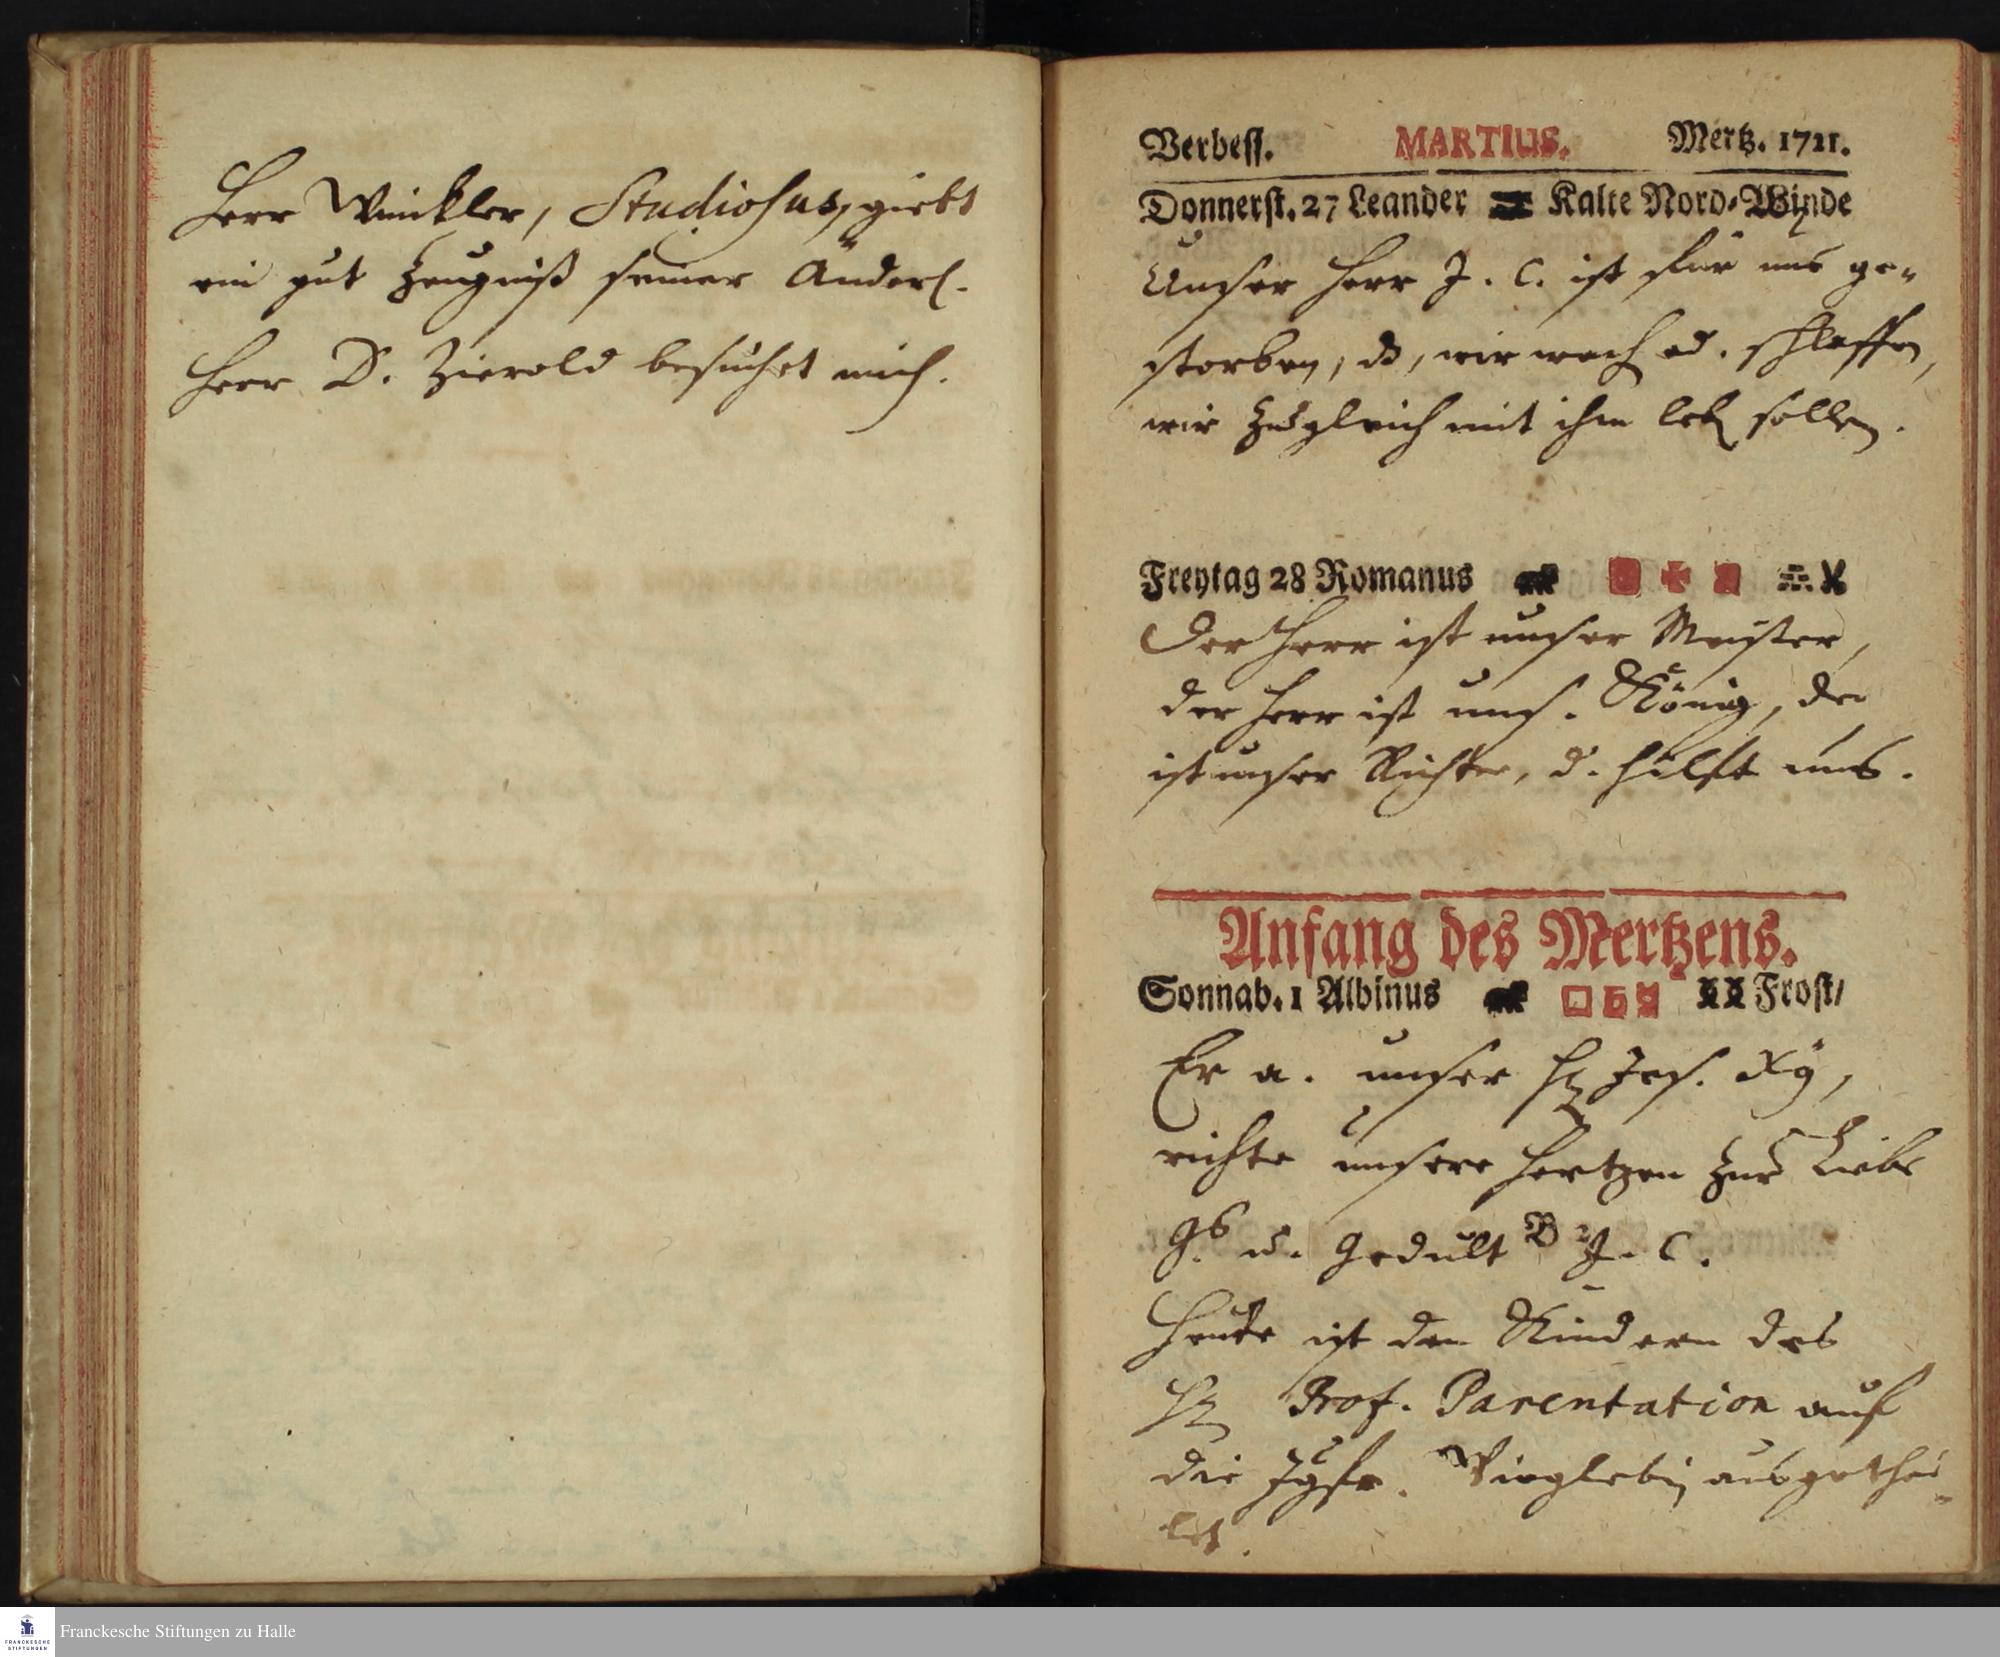 Herr Winckler, Studiosus, giebt
ein gut Zeugniß seiner Änderl.
Herr D. Zierold besuchet mich.
Verbess. MARTIUS. Mertz. 1721.
Donnerst. 27 Leander Kalte Nord-Winde
Unser Herr J. C. ist für uns ge-
storben, dß, wir wach od. schlaffen,
wir zugleich mit ihm leb sollen.
Freytag 28 Romanus
Der Herr ist unser Meister,
der Herr ist uns. König, der
ist unser Richter, d. hilft uns.
Anfang des Mertzens.
Sonnab. 1 Albinus Frost/
Er a. unser H Jes. Xg,
richte unsere Hertzen zur Liebe
Gs u. Gedult J. C.
Heute ist den Kindern des
H Prof. Parentation auf
die Jgfr. ausgethei-
let.
Franckesche Stiftungen zu Halle
FRANCKESCHE
STIFTUNGEN